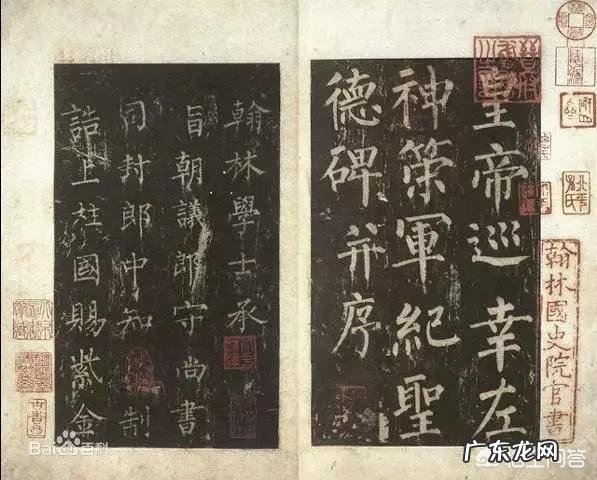 翰林國史院官書
皇帝巡幸左
神策軍紀聖
德碑并序
翰林學士承
旨朝議郎守尚書
司封郎中知制
誥上柱國賜紫金
Bai 百科
广东龙网